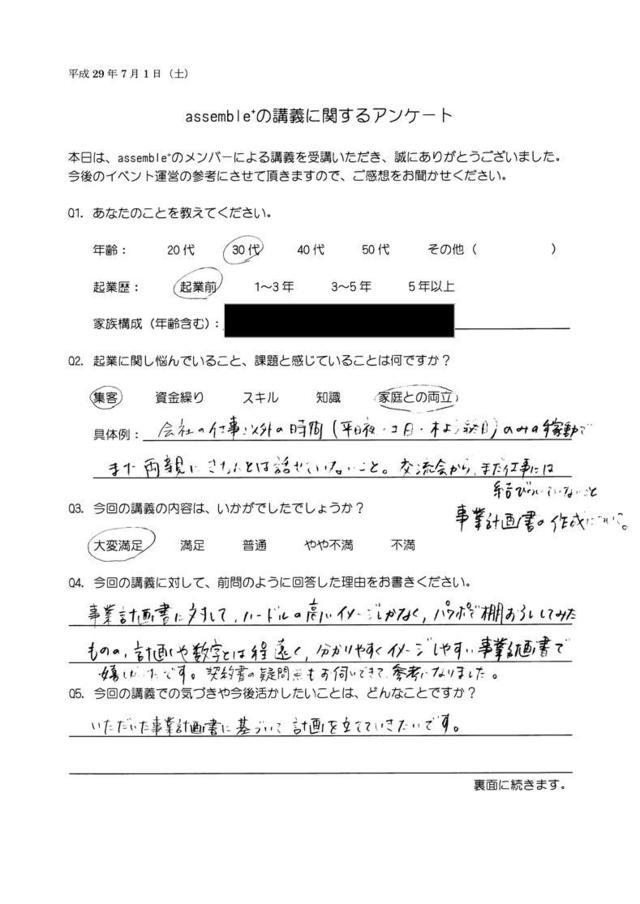 平成 29 年 7 月 1 日（土）
assemble⁺の講義に関するアンケート
本日は、assemble⁺のメンバーによる講義を受講いただき、誠にありがとうございました。
今後のイベント運営の参考にさせて頂きますので、ご感想をお聞かせください。
Q1. あなたのことを教えてください。
年齢： 20代 30代 40代 50代 その他（ ）
起業歴： 起業前 1～3年 3～5年 5年以上
家族構成（年齢含む）：
Q2. 起業に関し悩んでいること、課題と感じていることは何ですか？
集客 資金繰り スキル 知識 家庭との両立
具体例： 会社の仕事以外の時間（平日夜・土日・祝日）のみの稼動で
まだ両親にきちんとは話せていないこと。交流会から、まだ仕事には
結びついていないこと
Q3. 今回の講義の内容は、いかがでしたでしょうか？
事業計画書の作成について。
大変満足 満足 普通 やや不満 不満
Q4. 今回の講義に対して、前問のように回答した理由をお書きください。
事業計画書に対して、ハードルの高いイメージしかなく、パワポで棚おろししてみた
ものの、計画や数字とは程遠く、分かりやすくイメージしやすい事業計画書で
嬉しかったです。契約書の疑問点もお伺いできて、参考になりました。
Q5. 今回の講義での気づきや今後活かしたいことは、どんなことですか？
いただいた事業計画書に基づいて計画を立てていきたいです。
裏面に続きます。